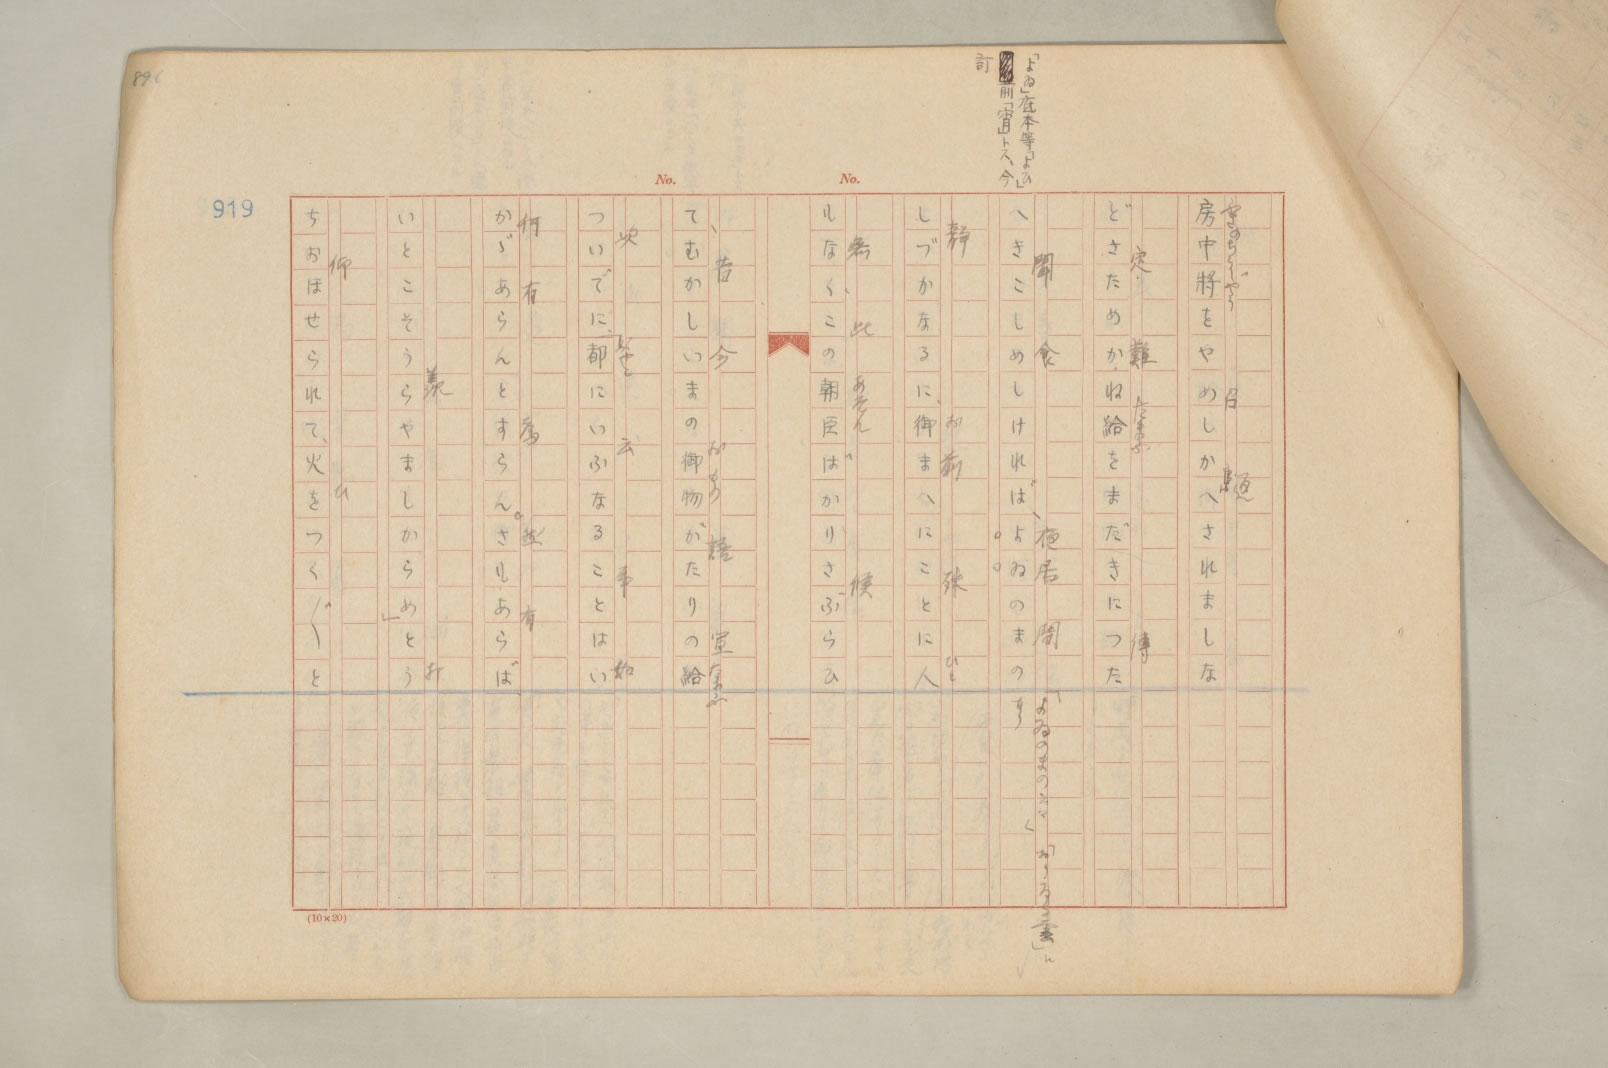 896
919
「よゐ」底本等「よひ」
前「宵」トス、今
訂
No.
No.
房中將をやめしかへされましな
召
どさだめかね給をまだきにつた
定
難
たまふ
傳
へきこしめしければ、よゐのまの
聞
食
夜居
間
しづかなるに、御まへにことに人
靜
お前
殊
ひと
もなく、この朝臣ばかりさぶらひ
無
此
あそん
候
てむかしいまの御物がたりの給
昔
今
語
宣
たまふ
ついでに、「都にいふなることはい
次
云
事
如
かゞあらんとすらん。さもあらば
何
有
為
然
有
いとこそうらやましからめ」とう
羨
打
ちおほせられて、火をつく〲と
仰
ひ
(10×20)